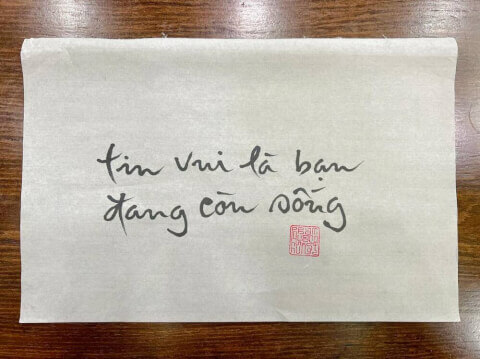 tin vui là bạn
đang còn sống